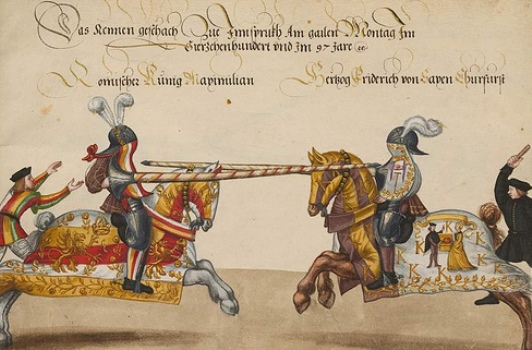 Das Rennen geschach Zue Innspruckh Am gailen Montag Im
Vierzehenhundert vnd Im 97 Jare
Romischer Kunig Maximilian
Hertzog Friderich von Saxen Churfurst
K K K K K K K K